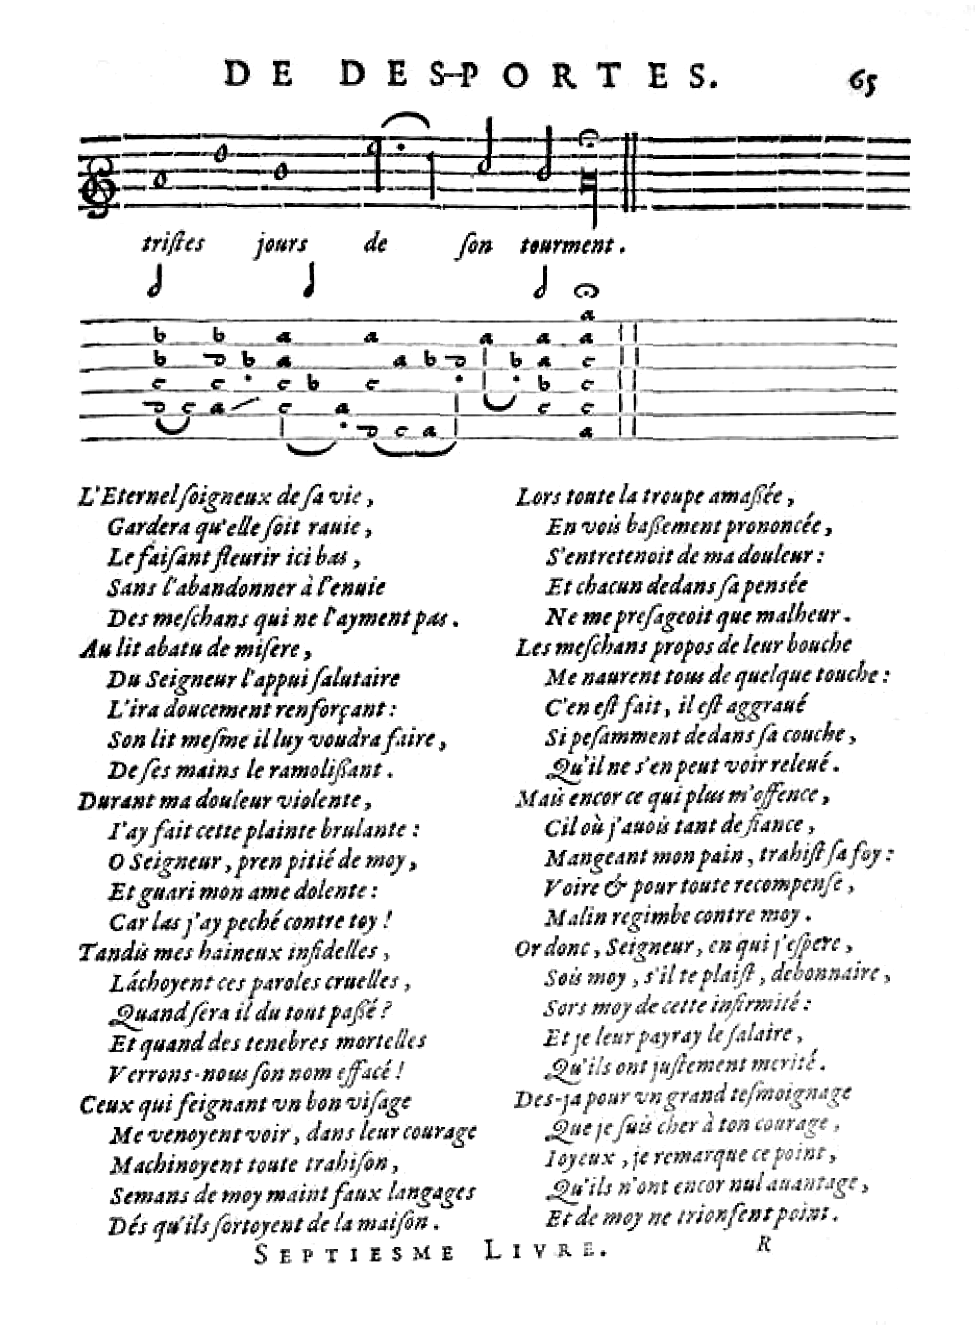 DE DES-PORTES. 65
triſtes jours de ſon tourment.
a
b b a a a a a
b d b a a b d b a c
c c c b c b c
d c a c a c c
d c a a
L'Eternel ſoigneux de ſa vie,
Gardera qu'elle ſoit rauie,
Le faiſant fleurir ici bas,
Sans l'abandonner à l'enuie
Des meſchans qui ne l'ayment pas.
Au lit abatu de miſere,
Du Seigneur l'appui ſalutaire
L'ira doucement renforçant:
Son lit meſme il luy voudra faire,
De ſes mains le ramoliſſant.
Durant ma douleur violente,
I'ay fait cette plainte brulante:
O Seigneur, pren pitié de moy,
Et guari mon ame dolente:
Car las j'ay peché contre toy!
Tandis mes haineux infidelles,
Láchoyent ces paroles cruelles,
Quand ſera il du tout paſſé?
Et quand des tenebres mortelles
Verrons-nous ſon nom effacé!
Ceux qui feignant vn bon viſage
Me venoyent voir, dans leur courage
Machinoyent toute trahiſon,
Semans de moy maint faux langages
Dés qu'ils ſortoyent de la maiſon.
Lors toute la troupe amaſſée,
En vois baſſement prononcée,
S'entretenoit de ma douleur:
Et chacun dedans ſa penſée
Ne me preſageoit que malheur.
Les meſchans propos de leur bouche
Me naurent tous de quelque touche:
C'en eſt fait, il eſt aggraué
Si peſamment dedans ſa couche,
Qu'il ne s'en peut voir releué.
Mais encor ce qui plus m'offence,
Cil où j'auois tant de fiance,
Mangeant mon pain, trahiſt ſa foy:
Voire & pour toute recompenſe,
Malin regimbe contre moy.
Or donc, Seigneur, en qui j'eſpere,
Sois moy, s'il te plaiſt, debonnaire,
Sors moy de cette infirmité:
Et je leur payray le ſalaire,
Qu'ils ont juſtement merité.
Des-ja pour vn grand teſmoignage
Que je ſuis cher à ton courage,
Ioyeux, je remarque ce point,
Qu'ils n'ont encor nul auantage,
Et de moy ne trionfent point.
SEPTIESME LIVRE. R